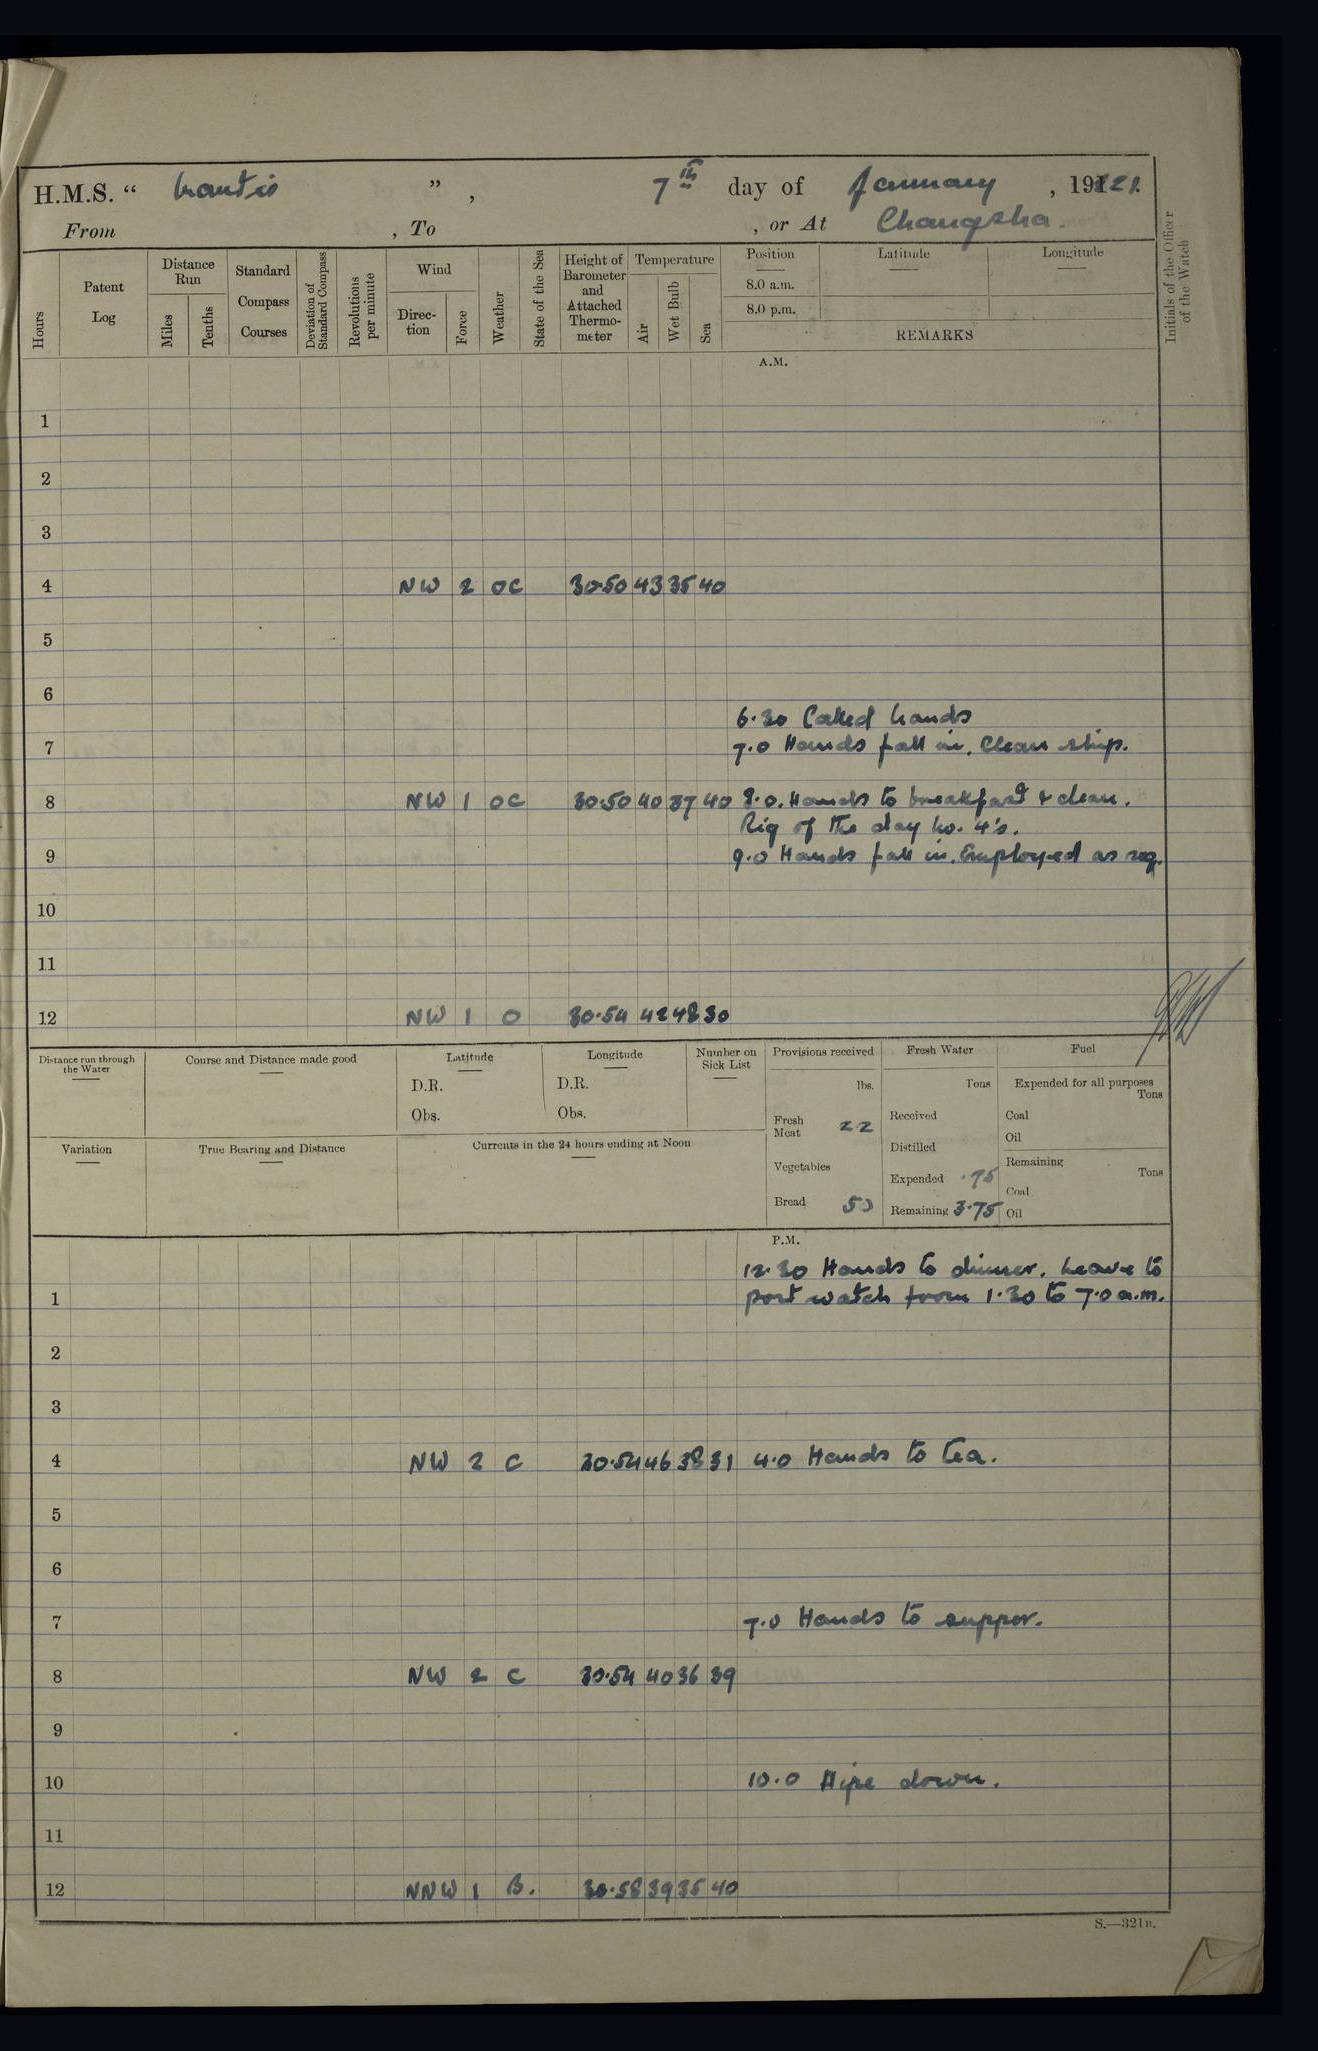 H.M.S. “ Mantis ”, 7th day of January, 1921.
From , To , or At Changsha.
Hours
Patent Log
Distance Run
Miles
Tenths
Standard Compass Courses
Deviation of Standard Compass
Revolutions per minute
Wind
Direction
Force
Weather
State of the Sea
Height of Barometer and Attached Thermometer
Temperature
Air
Wet Bulb
Sea
Position
Latitude
Longitude
8.0 a.m.
8.0 p.m.
REMARKS
Initials of the Officer of the Watch
A.M.
1
2
3
4 NW 2 OC 30.50 43 35 40
5
6
6.30 Called hands
7 7.0 Hands fall in. Clean ship.
8 NW 1 OC 30.50 40 37 40 8.0. Hands to breakfast & clean.
Rig of the day No. 4's.
9 9.0 Hands fall in. Employed as req.
10
11
12 NW 1 O 30.54 42 48 30
Distance run through the Water
Course and Distance made good
Latitude
D.R.
Obs.
Longitude
D.R.
Obs.
Number on Sick List
Provisions received
lbs.
Fresh Meat 22
Vegetables
Bread 50
Fresh Water
Tons
Received
Distilled
Expended .75
Remaining 3.75
Fuel
Expended for all purposes
Tons
Coal
Oil
Remaining
Tons
Coal
Oil
Variation
True Bearing and Distance
Currents in the 24 hours ending at Noon
P.M.
12.30 Hands to dinner. Leave to
1 port watch from 1.30 to 7.0 a.m.
2
3
4 NW 2 C 30.54 46 38 31 4.0 Hands to tea.
5
6
7 7.0 Hands to supper.
8 NW 2 C 30.54 40 36 39
9
10 10.0 Pipe down.
11
12 NNW 1 B. 30.58 39 35 40
S.—321B.